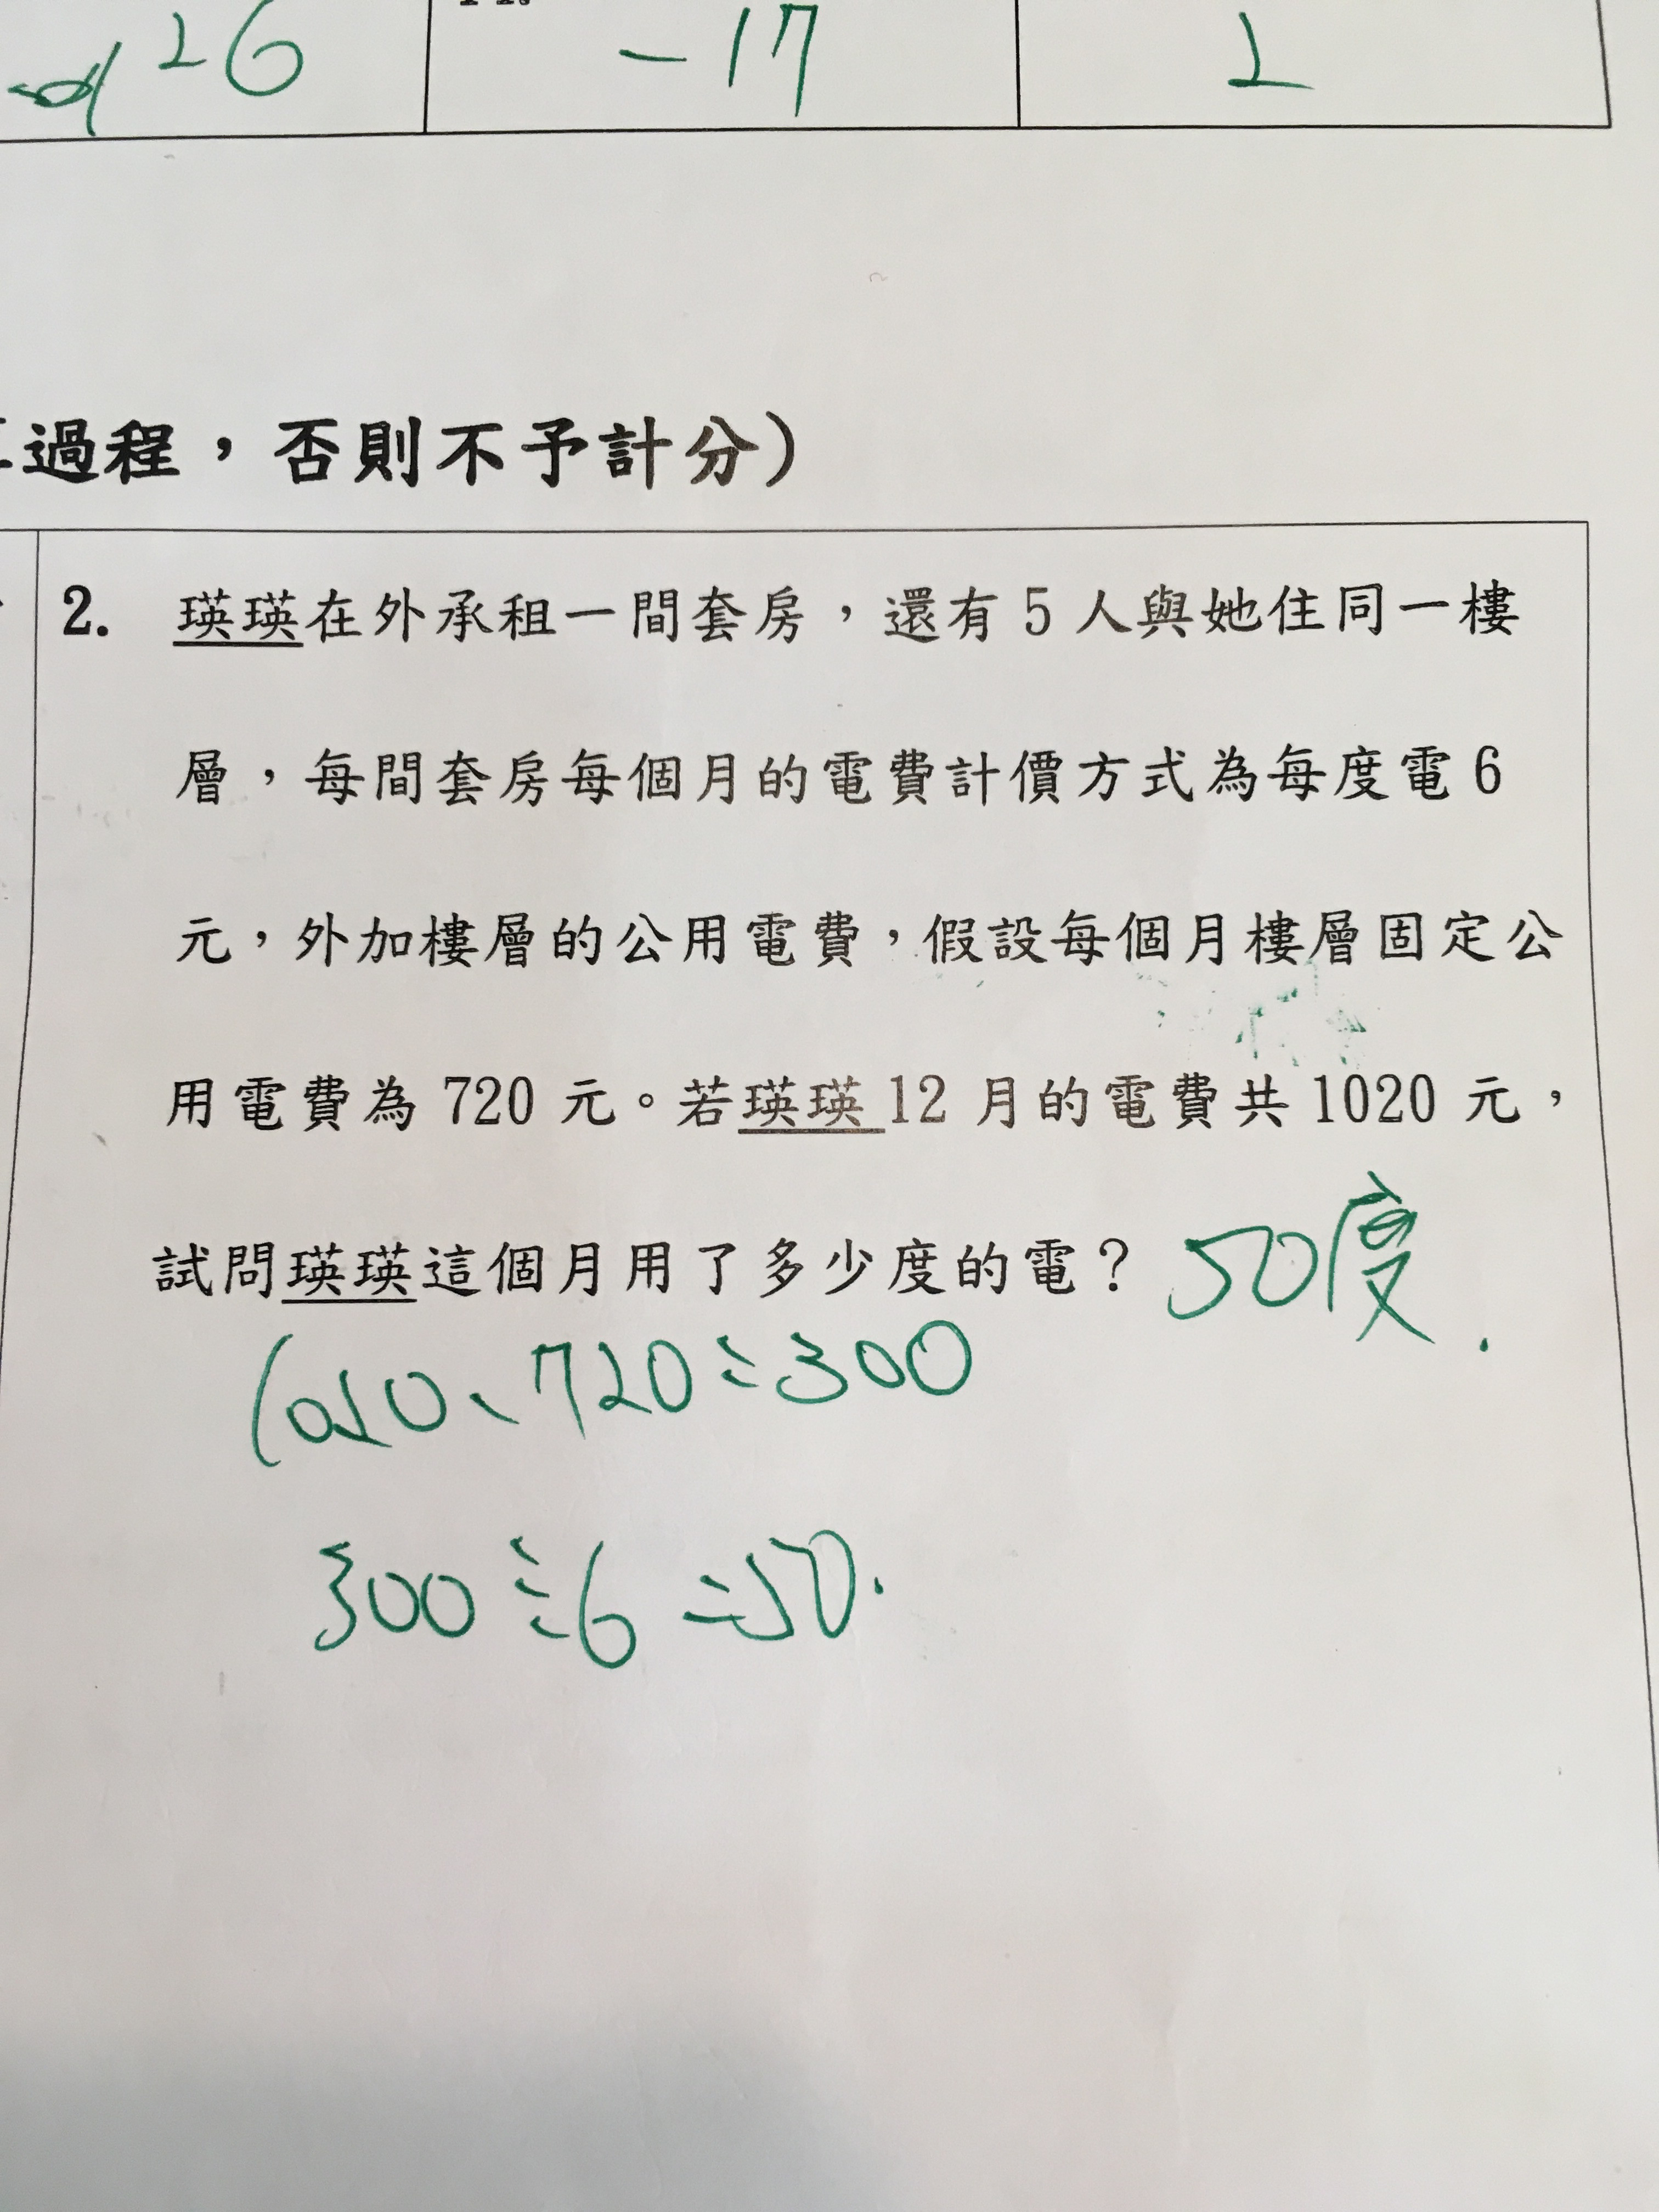 26
-17
2
過程，否則不予計分）
2. 瑛瑛在外承租一間套房，還有 5 人與她住同一樓
層，每間套房每個月的電費計價方式為每度電 6
元，外加樓層的公用電費，假設每個月樓層固定公
用電費為 720 元。若瑛瑛 12 月的電費共 1020 元，
試問瑛瑛這個月用了多少度的電？ 50度.
1020-720=300
300÷6=50.